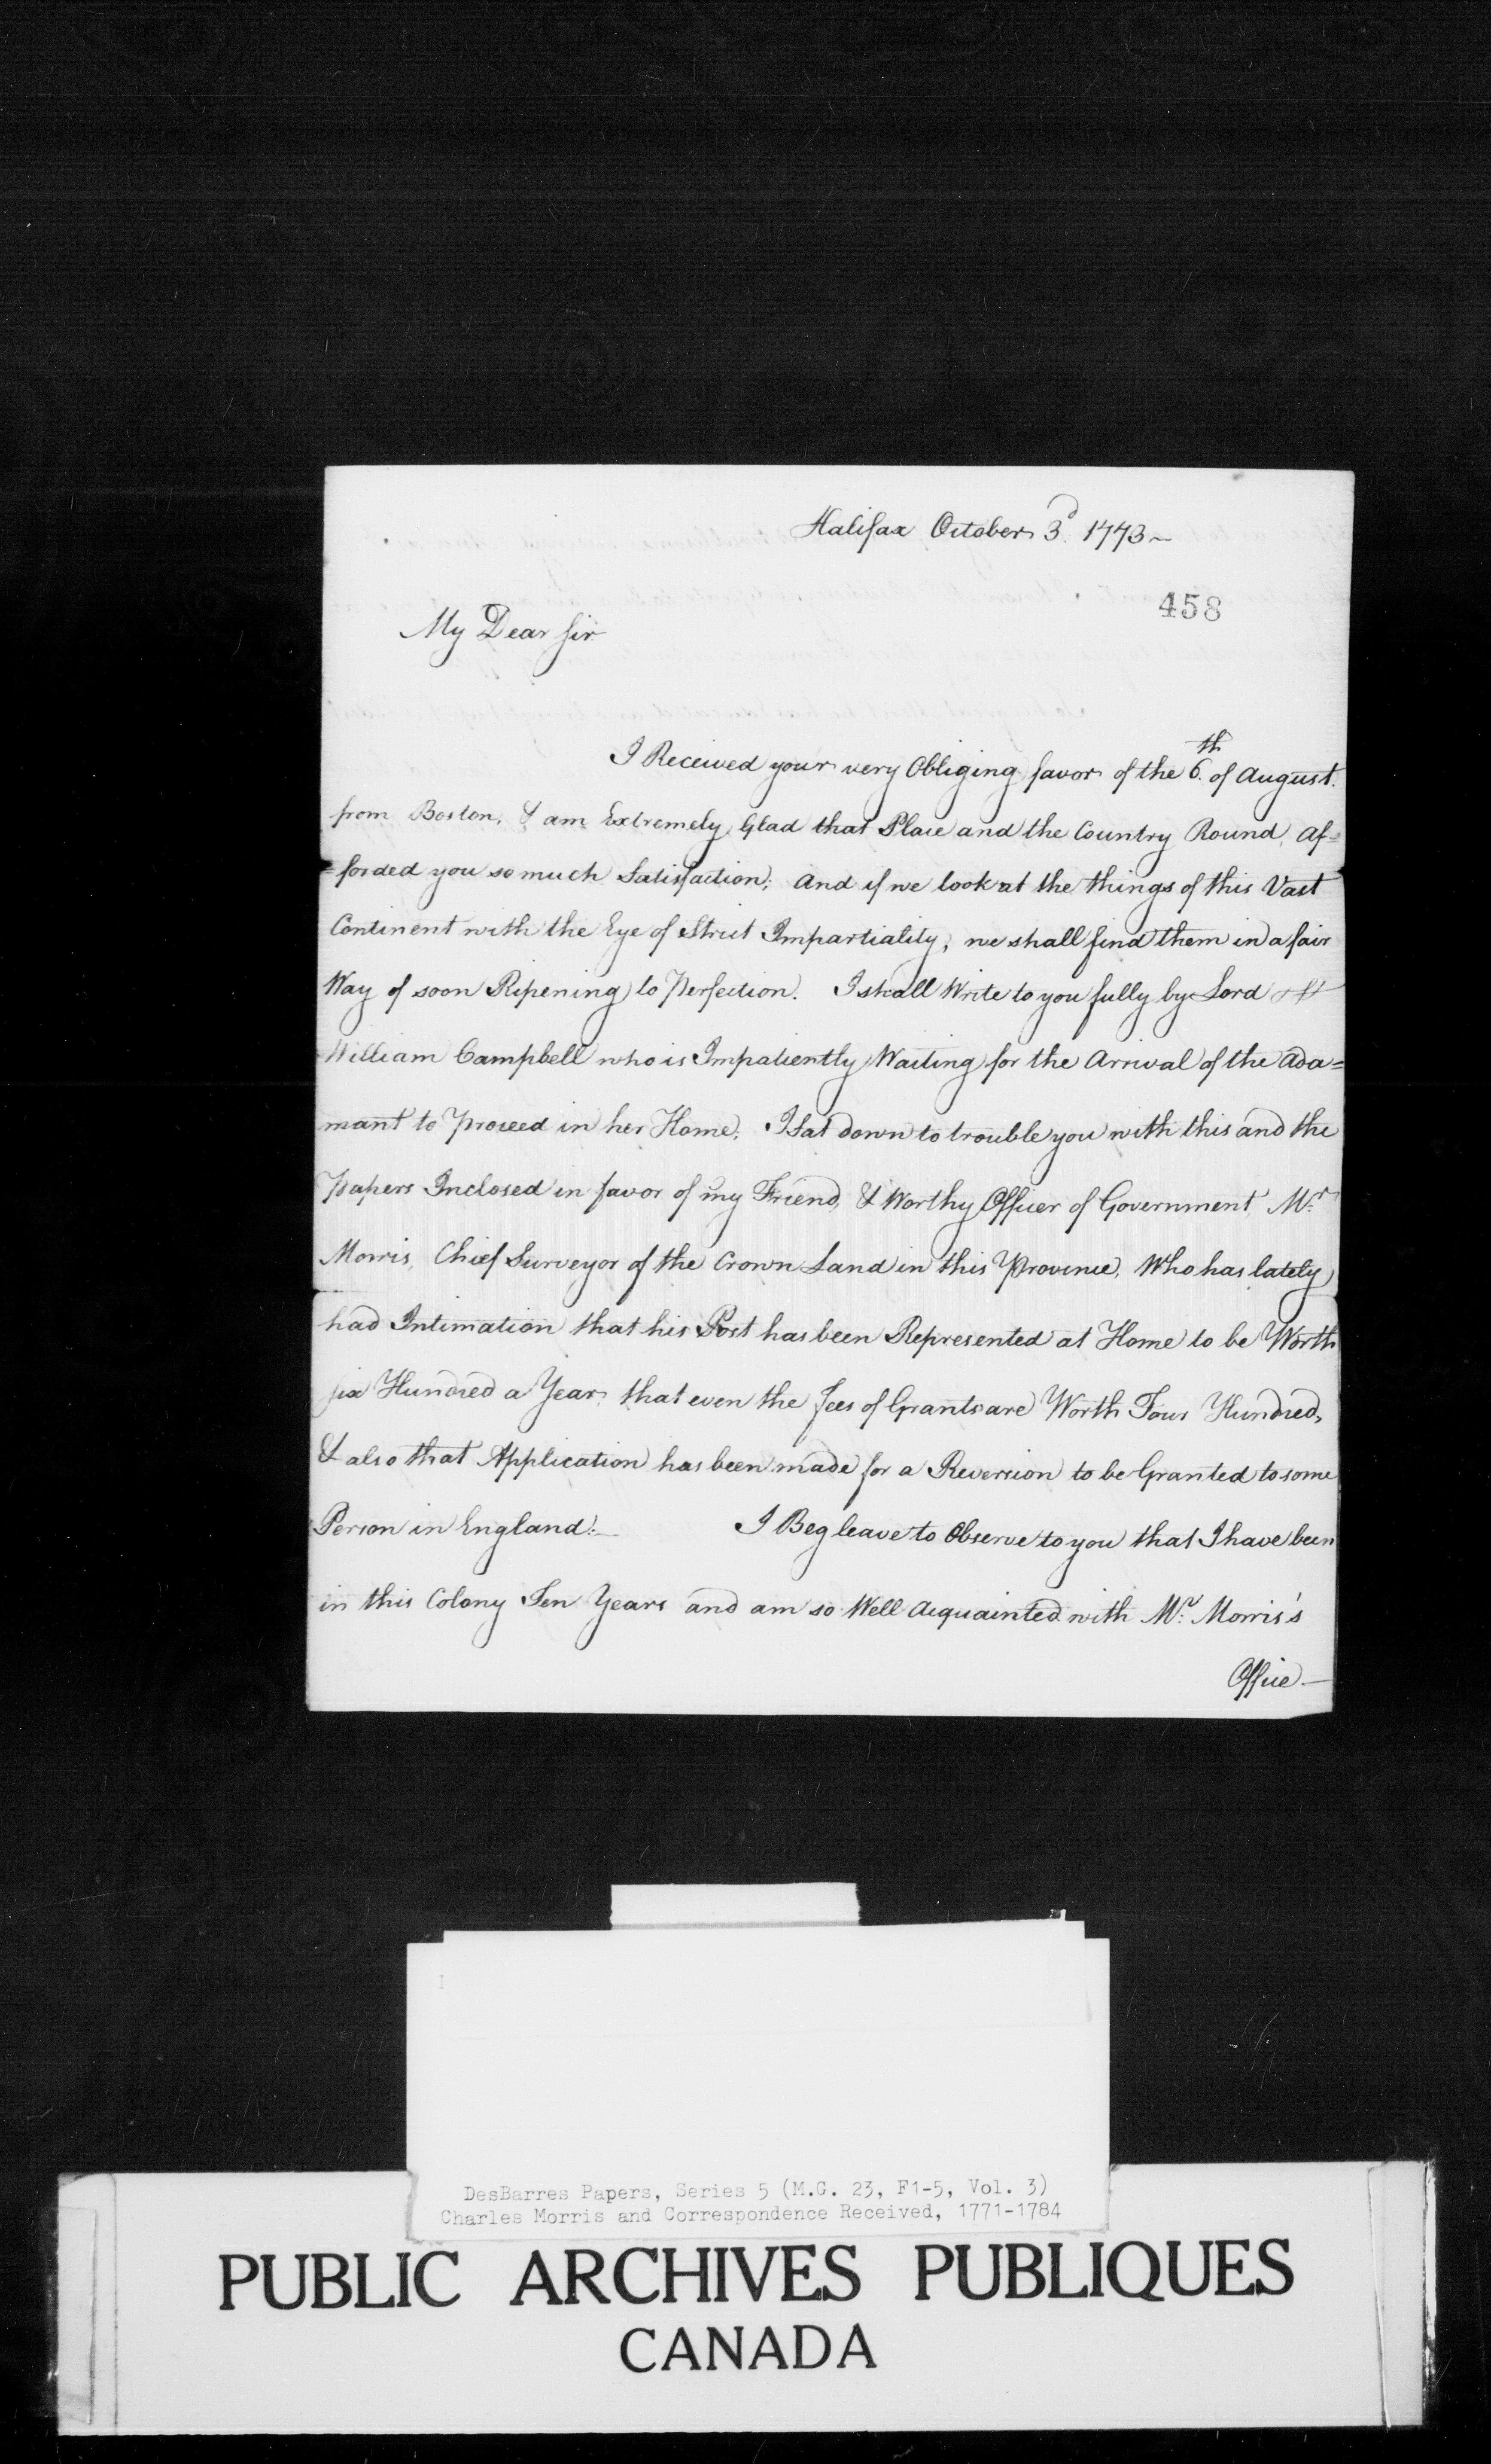 Halifax October 3d. 1773~
458
My Dear Sir
I Received your very Obliging favor of the 6th. of August.
from Boston. & am Extremely Glad that Place and the Country Round, Af=
=forded you so much Satisfaction; And if we look at the things of this Vast
Continent with the Eye of Strict Impartiality, we shall find them in a fair
Way of soon Ripening to Perfection. I shall Write to you fully by Lord
William Campbell who is Impatiently Waiting for the Arrival of the Ada=
mant to Proceed in her Home; I Sat down to trouble you with this and the
Papers Inclosed in favor of my Friend, & Worthy Officer of Government Mr.
Morris, Chief Surveyor of the Crown Land in this Province, Who has lately
had Intimation that his Post has been Represented at Home to be Worth
Six Hundred a Year, that even the Fees of Grants are Worth Four Hundred,
& also that Application has been made for a Reversion to be Granted to some
Person in England:— I Beg leave to Observe to you that I have been
in this Colony Ten Years and am so Well Acquainted with Mr. Morris's
Office—
DesBarres Papers, Series 5 (M.G. 23, F1-5, Vol. 3)
Charles Morris and Correspondence Received, 1771-1784
PUBLIC ARCHIVES PUBLIQUES
CANADA